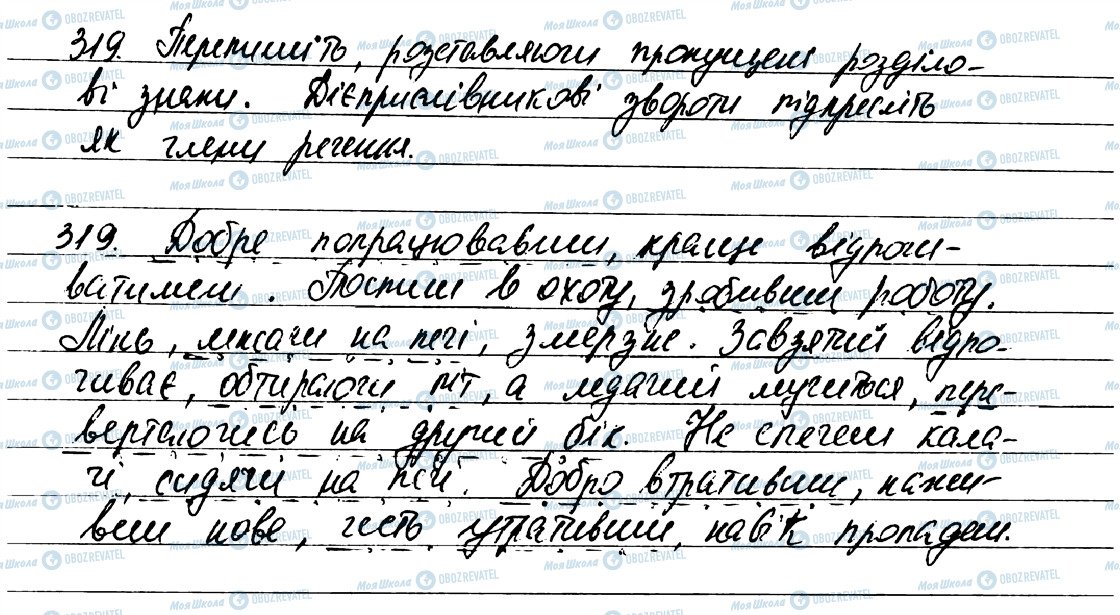 319. Перепишіть, розставляючи пропущені розділо-
ві знаки. Дієприслівникові звороти підкресліть
як члени речення.
319. Добре попрацювавши, краще відпочи-
ватимеш. Поспиш в охоту, зробивши роботу.
Лінь, лежачи на печі, змерзне. Завзятий відпо-
чиває, обтираючи піт, а ледачий мучиться, пере-
вертаючись на другий бік. Не спечеш кала-
чі, сидячи на печі. Добро втративши, нажи-
веш нове, честь утративши, навік пропадеш.